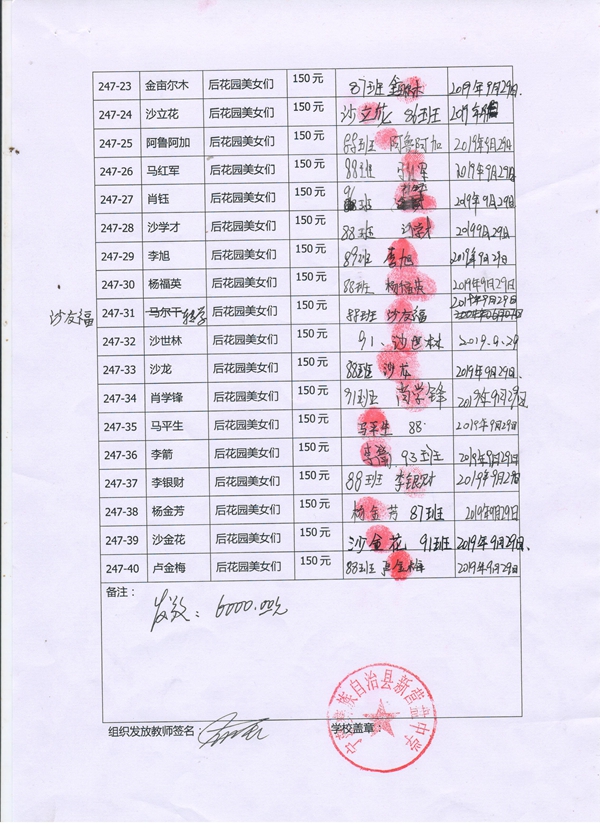 247-23 金亩尔木 后花园美女们 150元 87班 金亩尔木 2019年9月29日.
247-24 沙立花 后花园美女们 150元 沙立花 86班 2019年9月
247-25 阿鲁阿加 后花园美女们 150元 88班 阿鲁阿加 2019年9月29日
247-26 马红军 后花园美女们 150元 88班 马红军 2019年9月29日
247-27 肖钰 后花园美女们 150元 91班 2019年9月29日
247-28 沙学才 后花园美女们 150元 88班 沙学才 2019年9月29日
247-29 李旭 后花园美女们 150元 89班 李旭 2019年9月29日
247-30 杨福英 后花园美女们 150元 88班 杨福英 2019年9月29日
沙友福 247-31 马尔干 转学 后花园美女们 150元 88班 沙友福 2019年9月29日
247-32 沙世林 后花园美女们 150元 91、沙世林 2019.9.29
247-33 沙龙 后花园美女们 150元 88班 沙龙 2019年9月29日
247-34 肖学锋 后花园美女们 150元 91班 肖学锋 2019年9月29日
247-35 马平生 后花园美女们 150元 马平生 88 2019年9月29日
247-36 李箭 后花园美女们 150元 李箭 93班 2019年9月29日
247-37 李银财 后花园美女们 150元 88班 李银财 2019年9月29日
247-38 杨金芳 后花园美女们 150元 杨金芳 87班 2019年9月29日
247-39 沙金花 后花园美女们 150元 沙金花 91班 2019年9月29日.
247-40 卢金梅 后花园美女们 150元 88班 卢金梅 2019年9月29日
备注：
发放：6000.00元
宁 族自治县新营盘中学
组织发放教师签名： 学校盖章：